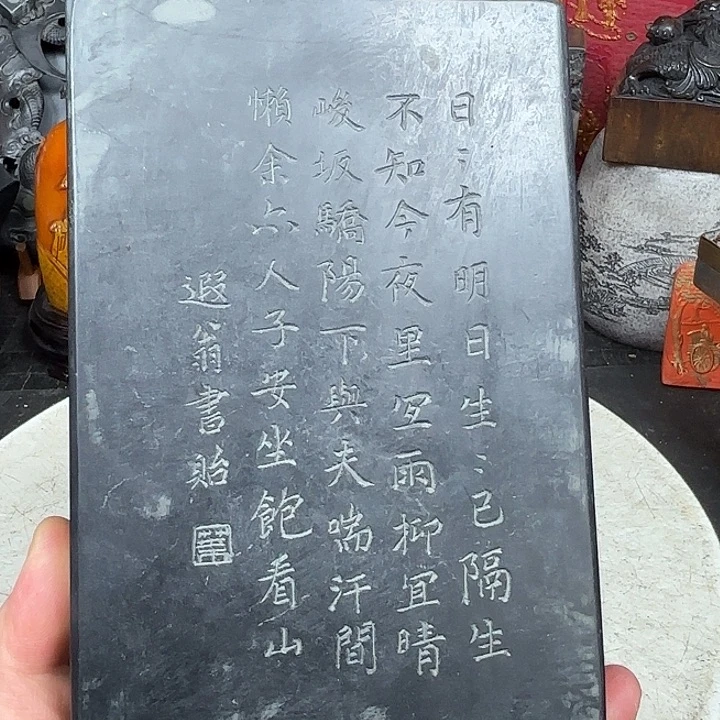 日〻有明日生〻已隔生
不知今夜里宜雨抑宜晴
峻坂驕陽下與夫喘汗間
懶余亦人子安坐飽看山
遐翁書貽